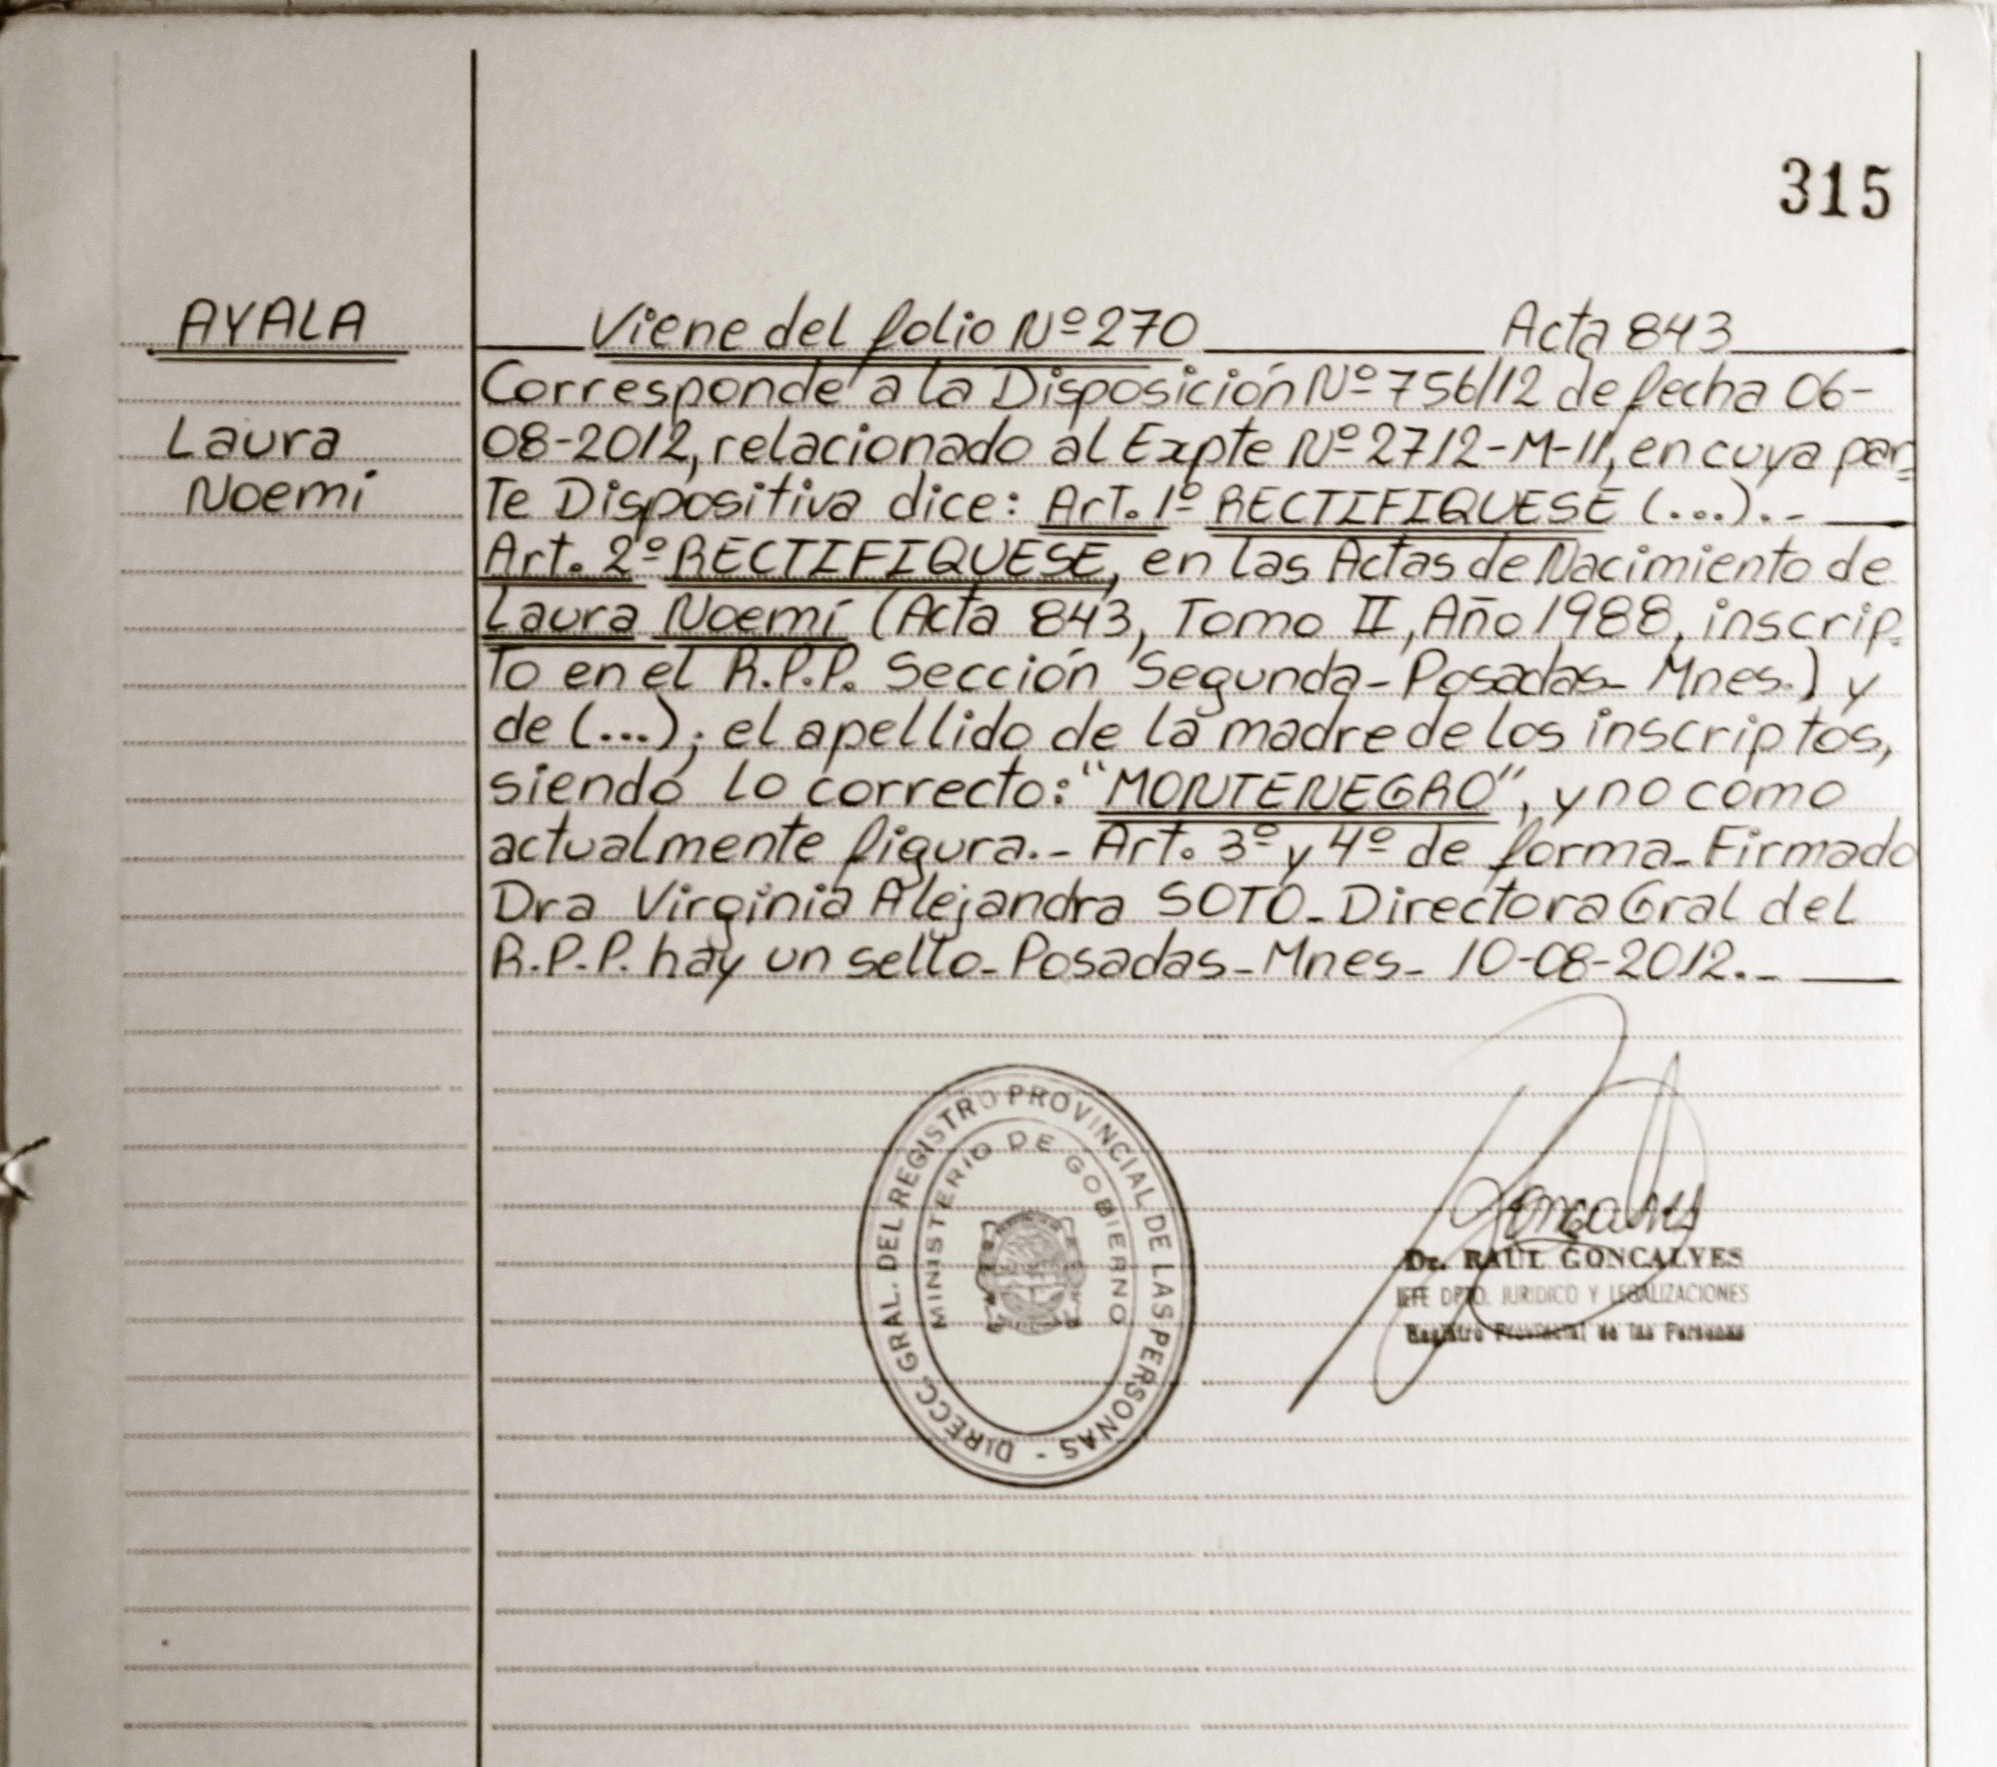 315
AYALA
Laura
Noemí
Viene del folio Nº 270 Acta 843
Corresponde a la Disposición Nº 756/12 de fecha 06-
08-2012, relacionado al Expte Nº 2712-M-11, en cuya par-
te Dispositiva dice: Art. 1º RECTIFIQUESE (...).-
Art. 2º RECTIFIQUESE, en las Actas de Nacimiento de
Laura Noemí (Acta 843, Tomo II, Año 1988, inscrip-
to en el R.P.P. Sección Segunda- Posadas- Mnes.) y
de (...); el apellido de la madre de los inscriptos,
siendo lo correcto: "MONTENEGRO", y no como
actualmente figura.- Art. 3º y 4º de forma- Firmado
Dra Virginia Alejandra SOTO- Directora Gral del
R.P.P. hay un sello- Posadas- Mnes- 10-08-2012.-
DIRECC. GRAL. DEL REGISTRO PROVINCIAL DE LAS PERSONAS -
MINISTERIO DE GOBIERNO
Goncalves
Dr. RAUL GONCALVES
JEFE DPTO. JURIDICO Y LEGALIZACIONES
Registro Provincial de las Personas